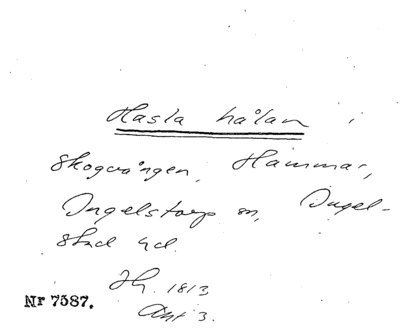 Hasla hålan i
Skogvången, Hammar,
Ingelstorps sn, Ingel-
stad hd.
Jh. 1813
Akt 3.
Nr 7587.